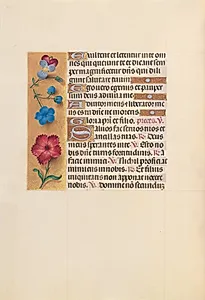 Exultent et letentur in te omnes
qui querunt te et dicant semper
magnificetur dñs qui diligunt
salutare tuum
Ego vero egenus et pauper
sum deus adiuva me
Adiutor meus et liberator meus
es tu dñe ne moreris
Gloria pri et filio. preces. V.
Salvos fac servos tuos et
ancillas tuas. R. Deus
meus sperantes in te V. Esto nobis
dñe turris fortitudinis. R. A
facie inimici V. Nichil proficiat
inimicus in nobis. R. Et filius
iniquitatis non apponat nocere
nobis. V. Domine nō secundum